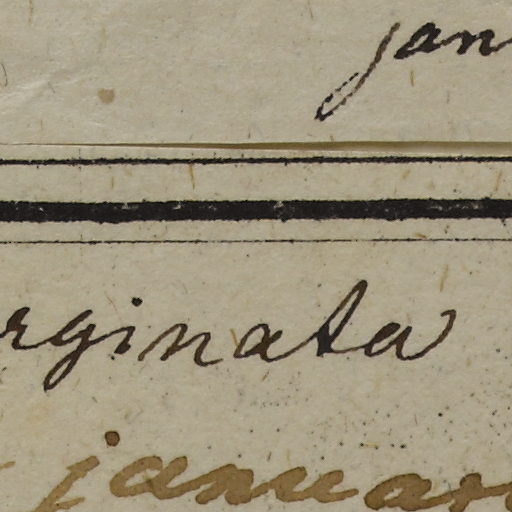 jan
rginata
januar